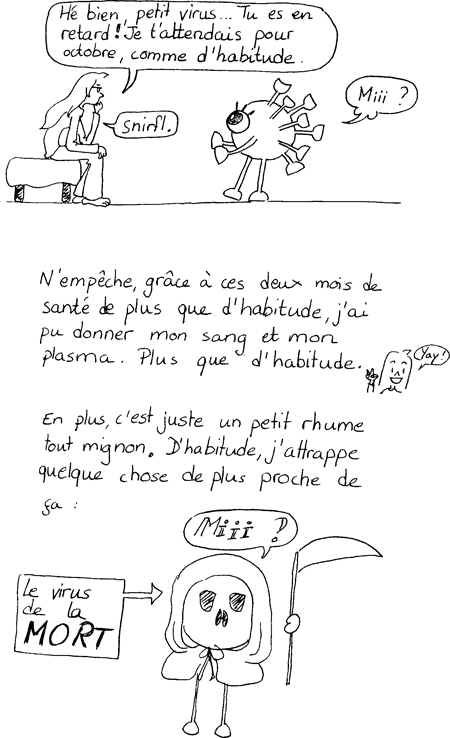 Hé bien, petit virus... Tu es en
retard ! Je t'attendais pour
octobre, comme d'habitude.
Snirfl.
Miii ?
N'empêche, grâce à ces deux mois de
santé de plus que d'habitude, j'ai
pu donner mon sang et mon
plasma. Plus que d'habitude.
Yay !
En plus, c'est juste un petit rhume
tout mignon. D'habitude, j'attrappe
quelque chose de plus proche de
ça :
Miii ?!
Le virus
de la
MORT